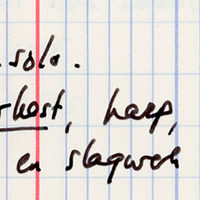 solo.
rkest, harp,
en slagwerk